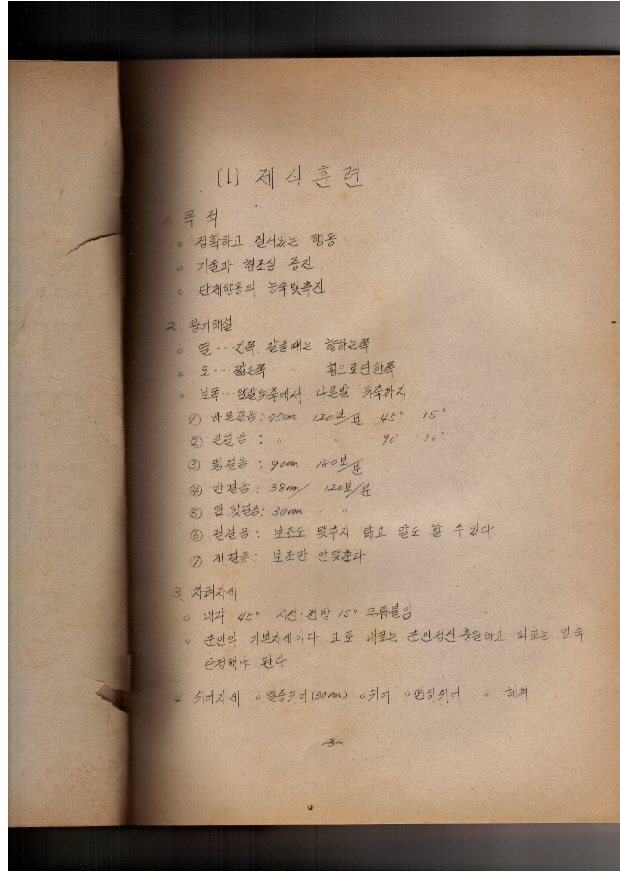 [1] 제식훈련
1. 목적
○ 정확하고 질서있는 행동
○ 기술과 협조심 증진
○ 단체행동의 능숙및촉진
2. 용어해설
○ 열 … 갈을때는 향하는쪽
○ 오 … 짧은쪽 〃 횡으로연한쪽
○ 보폭 … 앞발뒤축에서 다른발 뒤축까지
① 바른걸음: 75cm 120보/분 45° 15°
② 큰걸음: 〃 〃 90° 30°
③ 뜀걸음: 90cm 180보/분
④ 반걸음: 38cm/ 120보/분
⑤ 옆,뒷걸음: 30cm 〃 〃
⑥ 길걸음: 보조도 맞추지 않고 말도 할 수 있다
⑦ 제걸음: 보조만 안맞춘다
3. 차려자세
○ 내각 45° 시선:전방 15°
○ 군인의 기본자세이다 고로 내로는 군인정신 충일하고 외로는 엄숙
단정해야 한다
4. 쉬어자세 ○ 열중쉬어(30cm) ○ 쉬어 ○ 편히쉬어 ○
-3-